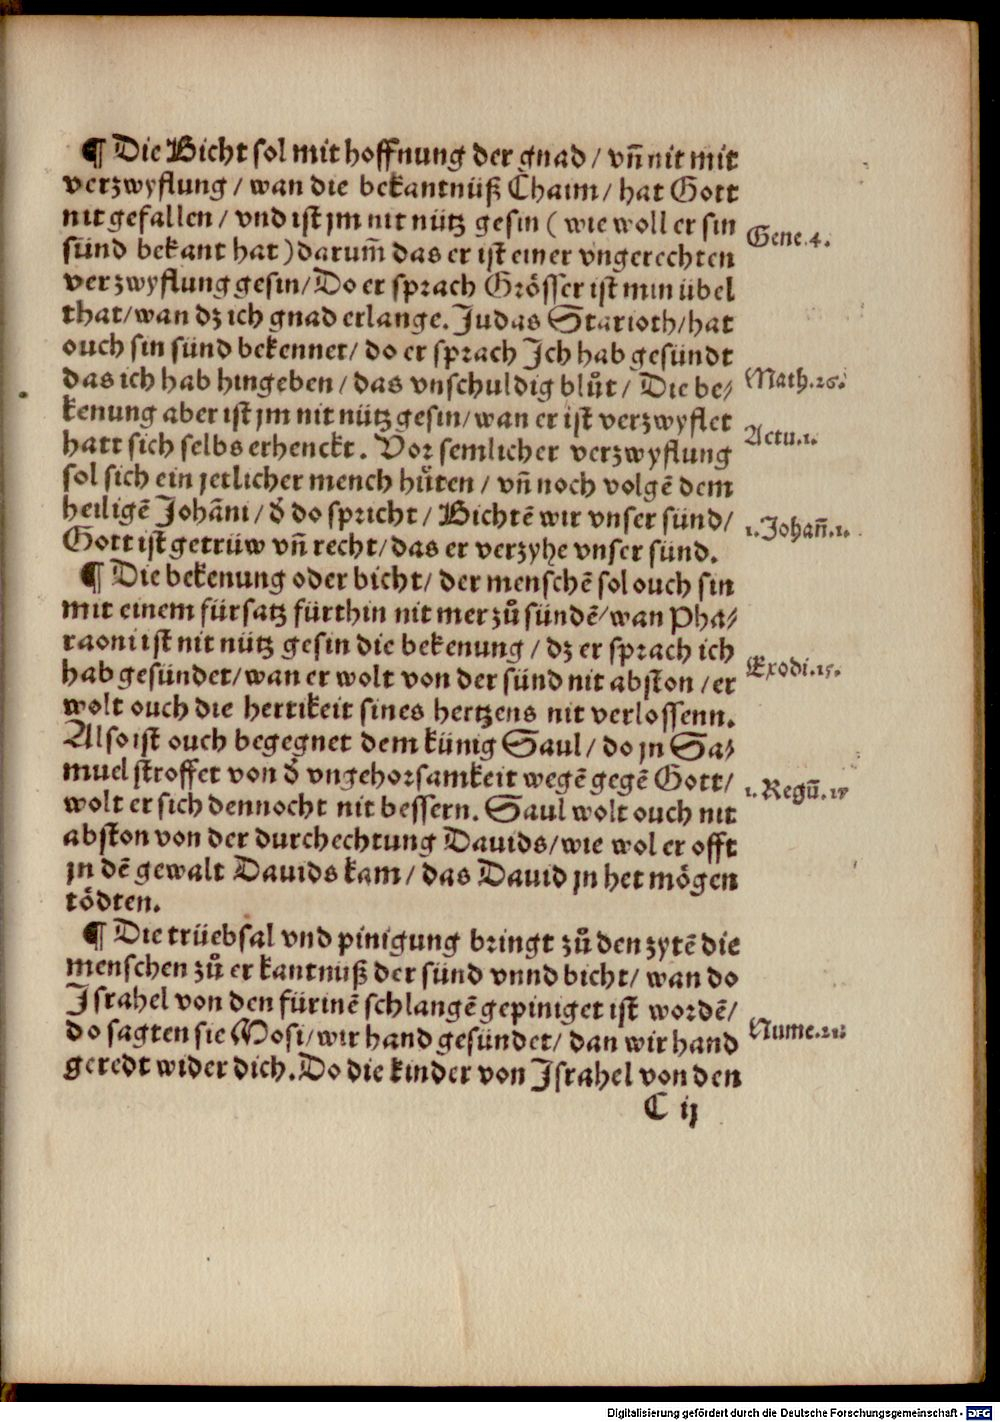 ¶ Die Bicht sol mit hoffnung der gnad / vn̄ nit mit
verzwyflung / wan die bekantnüß Chaim / hat Gott
nit gefallen / vnd ist jm nit nütz gesin ( wie woll er sin
sünd bekant hat ) darum̄ das er ist einer vngerechten
Gene.4.
verzwyflung gesin / Do er sprach Grösser ist min übel
that / wan dz ich gnad erlange. Judas Starioth / hat
ouch sin sünd bekennet / do er sprach Ich hab gesündt
das ich hab hingeben / das vnschuldig blůt / Die be⸗
Math.26.
kenung aber ist jm nit nütz gesin / wan er ist verzwyflet
hatt sich selbs erhenckt. Vor semlicher verzwyflung
Actu.1.
sol sich ein jetlicher mench hůten / vn̄ noch volgē dem
heiligē Johāni / d̄ do spricht / Bichtē wir vnser sünd /
1. Johan̄.1.
Gott ist getrüw vn̄ recht / das er verzyhe vnser sünd.
¶ Die bekenung oder bicht / der menschē sol ouch sin
mit einem fürsatz fürthin nit mer zů sündē / wan Pha⸗
raoni ist nit nütz gesin die bekenung / dz er sprach ich
hab gesündet / wan er wolt von der sünd nit abston / er
Exodi.15.
wolt ouch die hertikeit sines hertzens nit verlossenn.
Also ist ouch begegnet dem künig Saul / do jn Sa⸗
muel stroffet von d̄ vngehorsamkeit wegē gegē Gott /
1. Regū.15
wolt er sich dennocht nit bessern. Saul wolt ouch nit
abston von der durchechtung Dauids / wie wol er offt
jn dē gewalt Dauids kam / das Dauid jn het mögen
tödten.
¶ Die trüebsal vnd pinigung bringt zů den zytē die
menschen zů er kantnuß der sünd vnnd bicht / wan do
Israhel von den fürinē schlangē gepiniget ist wordē /
do sagten sie Mosi / wir hand gesündet / dan wir hand
Nume.21
geredt wider dich. Do die kinder von Israhel von den
C ij
Digitalisierung gefördert durch die Deutsche Forschungsgemeinschaft - DFG